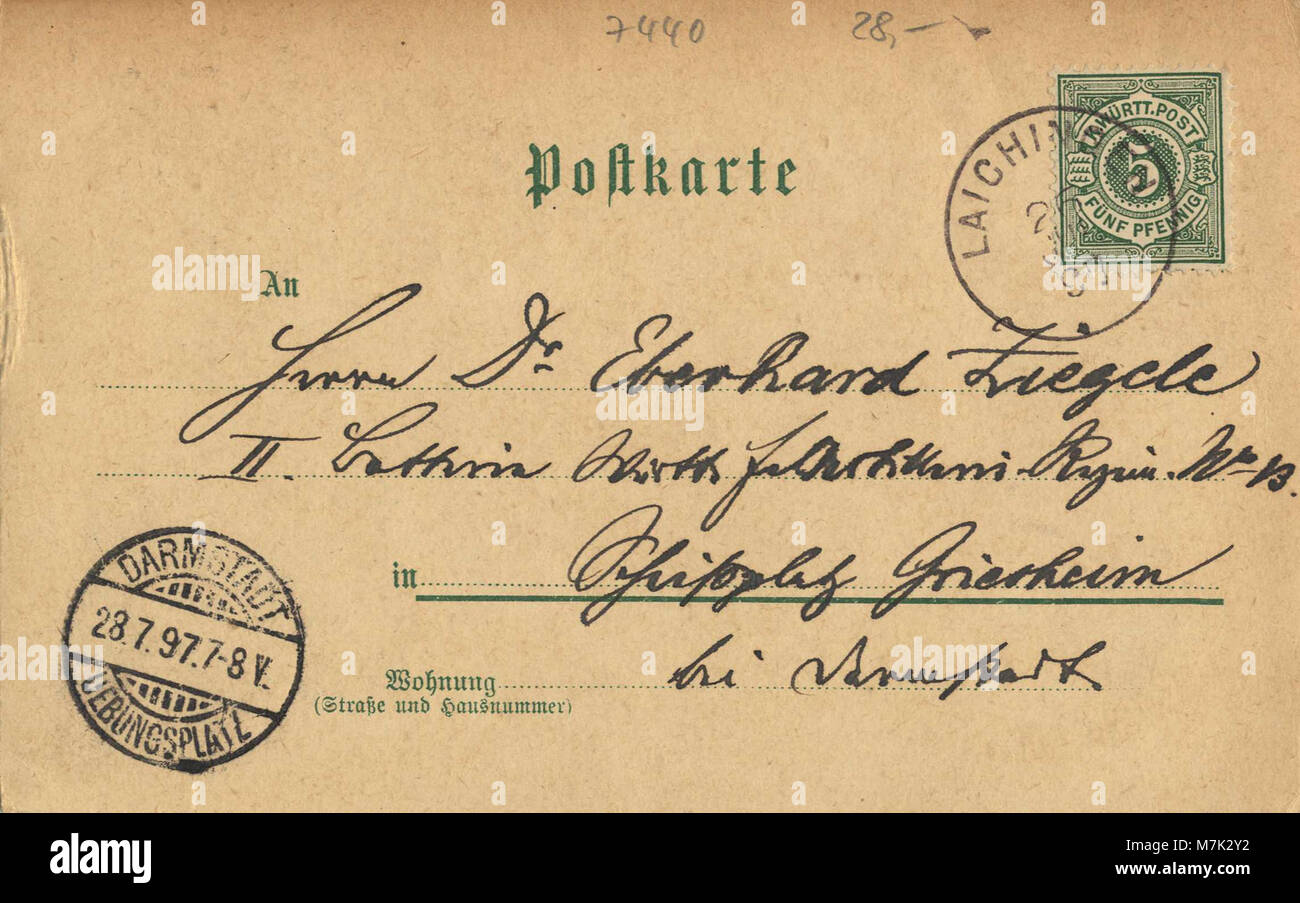 7440 28,-
K. WÜRTT. POST
5
FÜNF PFENNIG
LAICHIN
Postkarte
An
Herrn Dr. Eberhard Ziegele
II. Batterie Württ. Feldartillerie Regim. No 13.
in Schießplatz Griesheim
bei Darmstadt
Wohnung
(Straße und Hausnummer)
DARMSTADT
28.7.97.7-8 V.
UEBUNGSPLATZ
alamy
www.alamy.com
Image ID: M7K2Y2